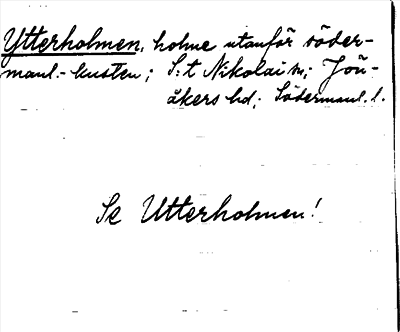 Ytterholmen, holme utanför söder-
manl.-kusten; S:t Nikolai sn; Jön-
åkers hd; Södermanl. l.
Se Utterholmen!